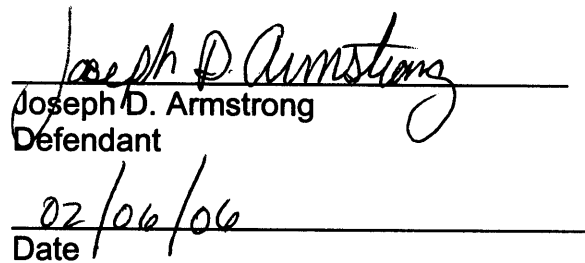 Joseph D. Armstrong
Joseph D. Armstrong
Defendant
02/06/06
Date